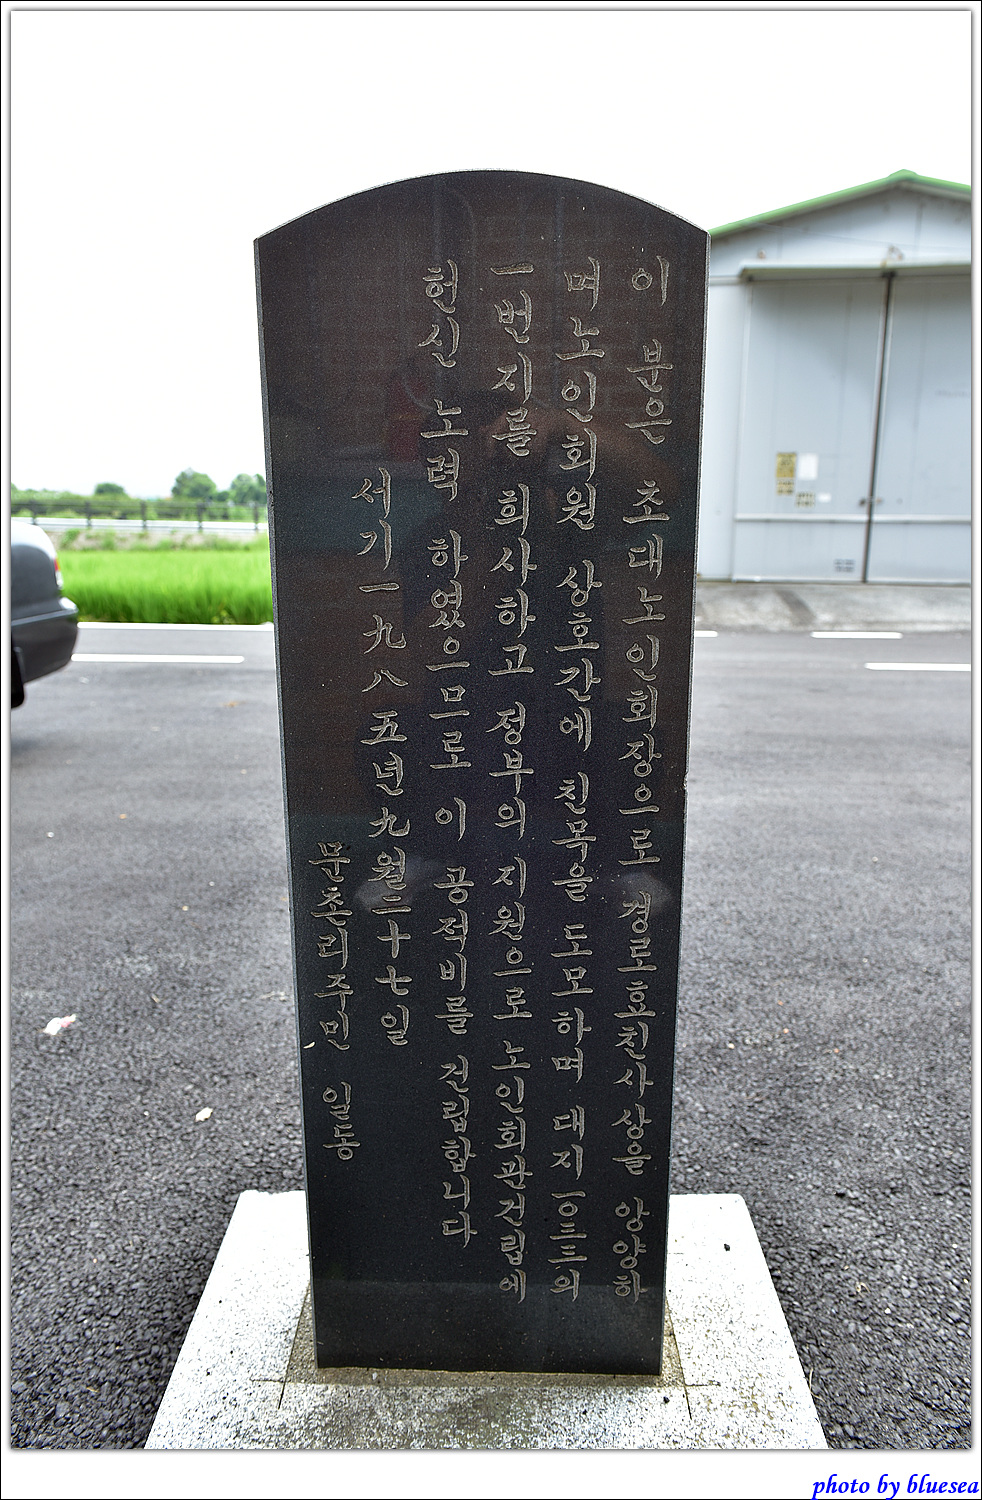 이 분은 초대노인회장으로 경로효친사상을 앙양하
며노인회원 상호간에 친목을 도모하며 대지 一〇三三의
一번지를 희사하고 정부의 지원으로 노인회관건립에
헌신 노력 하였으므로 이 공적비를 건립합니다
서기一九八五년九월二十七일
문촌리주민 일동
photo by bluesea